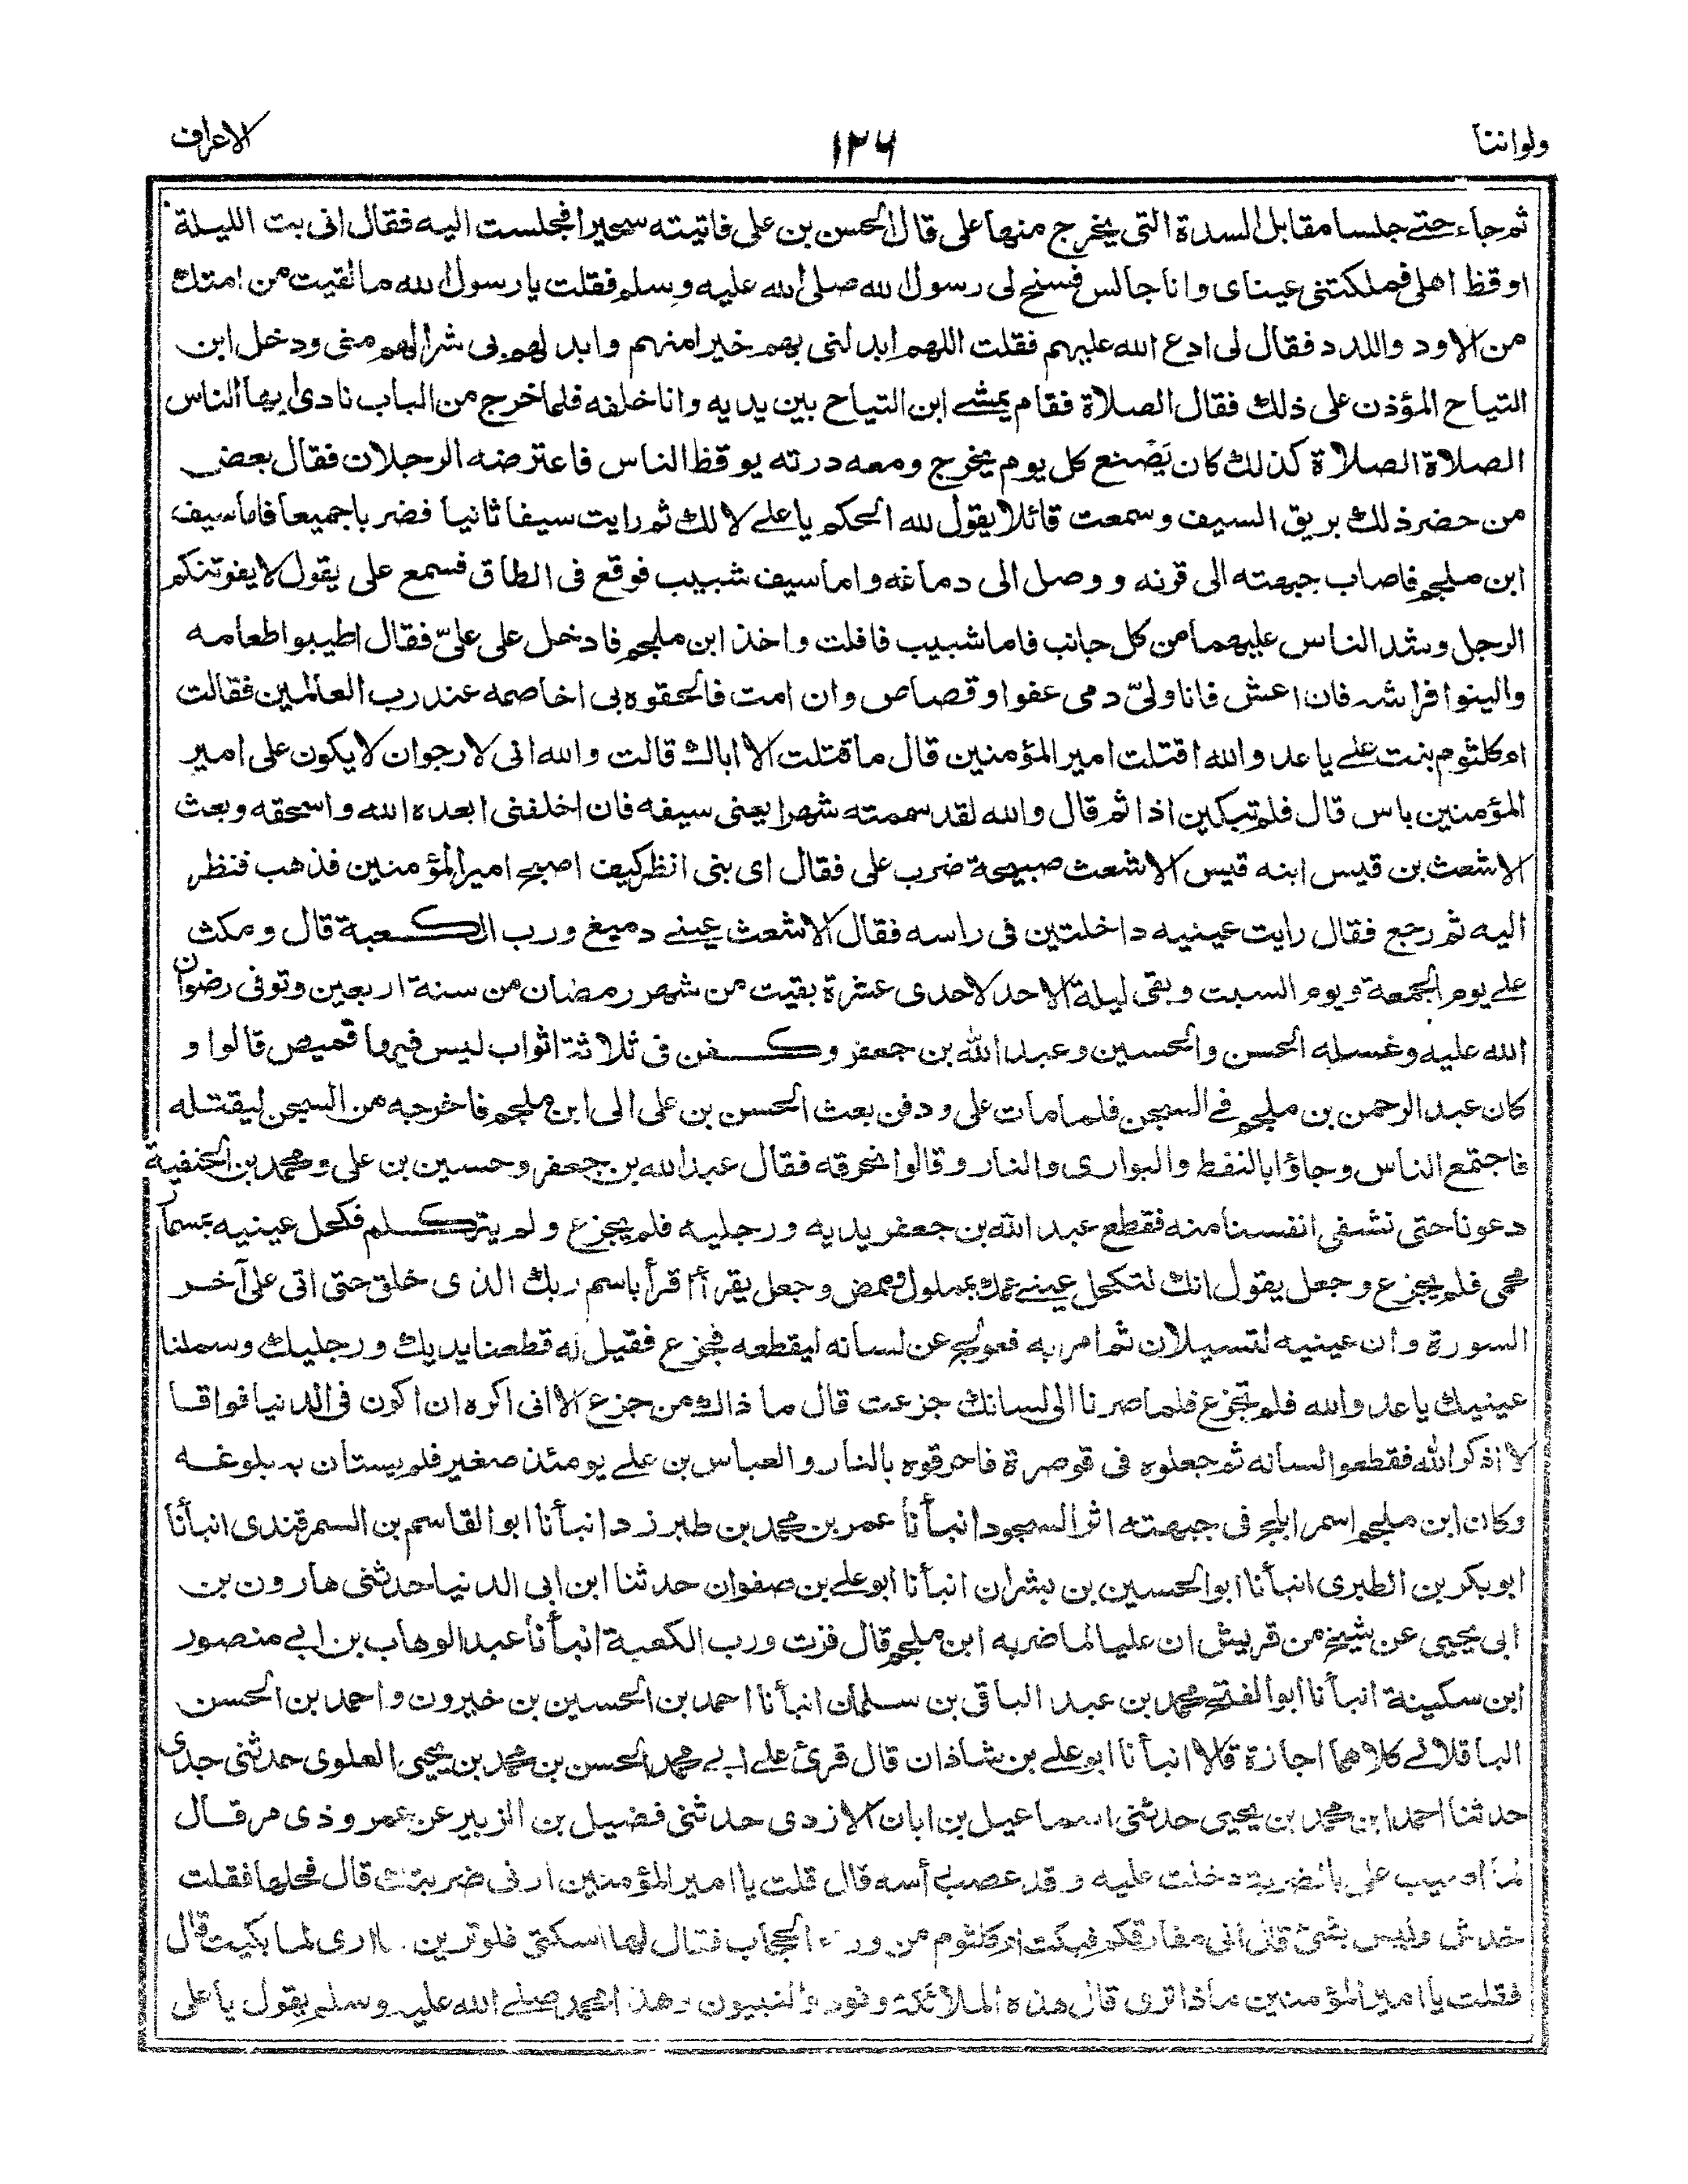 ولواننا
١٢٦
الاعراف
ثم جاء حتے جلسا مقابل السدة التی يخرج منها علی قال الحسن بن علی فاتيته سحيرا فجلست اليه فقال انی بت الليلة
اوقظ اهلی فملكتنی عينای وانا جالس فسنح لی رسول الله صلی الله عليه وسلم فقلت يا رسول الله ما لقيت من امتك
من الاود واللدد فقال لی ادع الله عليهم فقلت اللهم ابدلنی بهم خيرا منهم وابدلهم بی شرا لهم منی ودخل ابن
التياح المؤذن علی ذلك فقال الصلاة فقام يمشے ابن التياح بين يديه وانا خلفه فلما خرج من الباب نادی ايها الناس
الصلاة الصلاة كذلك كان يَصْنع كل يوم يخرج ومعه درته يوقظ الناس فاعترضه الرجلان فقال بعض
من حضر ذلك بريق السيف وسمعت قائلا يقول لله الحكم يا علے لا لك ثم رايت سيفا ثانيا فضربا جميعا فاما سيف
ابن ملجم فاصاب جبهته الی قرنه ووصل الی دماغه واما سيف شبيب فوقع فی الطاق فسمع علی يقول لا يفوتنكم
الرجل وشد الناس عليهما من كل جانب فاما شبيب فافلت واخذ ابن ملجم فادخل علی علیّ فقال اطيبوا طعامه
والينوا فراشه فان اعش فانا ولیّ دمی عفوا وقصاص وان امت فالحقوه بی اخاصمه عند رب العالمين فقالت
ام كلثوم بنت علے يا عدو الله اقتلت امير المؤمنين قال ما قتلت الا اباك قالت والله انی لارجوان لا يكون علی امير
المؤمنين باس قال فلم تبكين اذا ثم قال والله لقد سممته شهرا يعنی سيفه فان اخلفنی ابعده الله واسحقه وبعث
الاشعث بن قيس ابنه قيس الاشعث صبيحة ضرب علی فقال ای بنی انظر كيف اصبح امير المؤمنين فذهب فنظر
اليه ثم رجع فقال رايت عينيه داخلتين فی راسه فقال الاشعث عينے دميغ ورب الكعبة قال ومكث
علے يوم الجمعة ويوم السبت وبقی ليلة الاحد لاحدی عشرة بقيت من شهر رمضان من سنة اربعين وتوفی رضوان
الله عليه وغسله الحسن والحسين وعبد الله بن جعفر وكفن فی ثلاثة اثواب ليس فيها قميص قالوا و
كان عبد الرحمن بن ملجم فے السجن فلما مات علی ودفن بعث الحسن بن علی الی ابن ملجم فاخرجه من السجن ليقتله
فاجتمع الناس وجاؤا بالنفط والبواری والنار وقالوا نحرقه فقال عبد الله بن جعفر وحسين بن علی ومحمد بن الحنفية
دعونا حتی نشفی انفسنا منه فقطع عبد الله بن جعفر يديه ورجليه فلم يجزع ولم يتكلم فكحل عينيه بمسمار
محمی فلم يجزع وجعل يقول انك لتكحل عينے عمك بملول ممض وجعل يقرأ اقرأ باسم ربك الذی خلق حتی اتی علی آخر
السورة وان عينيه لتسيلان ثم امر به فعولج عن لسانه ليقطعه فجزع فقيل له قطعنا يديك ورجليك وسملنا
عينيك يا عدو الله فلم تجزع فلما صرنا الی لسانك جزعت قال ما ذاك من جزع الا انی اكره ان اكون فی الدنيا فواقا
لا اذكر الله فقطعوا لسانه ثم جعلوه فی قوصرة فاحرقوه بالنار والعباس بن علے يومئذ صغير فلم يستان به بلوغه
وكان ابن ملجم اسمر ابلج فی جبهته اثر السجود انبأنا عمر بن محمد بن طبرزد انبأنا ابو القاسم بن السمرقندی انبأنا
ابو بكر بن الطبری انبأنا ابو الحسين بن بشران انبأنا ابو علے بن صفوان حدثنا ابن ابی الدنيا حدثنی هارون بن
ابی يحيی عن شيخ من قريش ان عليا لما ضربه ابن ملجم قال فزت ورب الكعبة انبأنا عبد الوهاب بن ابے منصور
ابن سكينة انبأنا ابو الفتح محمد بن عبد الباقی بن سلمان انبأنا احمد بن الحسين بن خيرون واحمد بن الحسن
الباقلانے كلاهما اجازة قالا انبأنا ابو علے بن شاذان قال قرئ علے ابے محمد الحسن بن محمد بن يحيی العلوی حدثنی جدی
حدثنا احمد ابن محمد بن يحيی حدثنی اسماعيل بن ابان الازدی حدثنی فضيل بن الزبير عن عمرو ذی مر قال
لما اصيب علی بالضربة دخلت عليه وقد عصب رأسه قال قلت يا امير المؤمنين ارنی ضربتك قال فحلها فقلت
خدش وليس بشئ قال انی مفارقكم فبكت ام كلثوم من وراء الحجاب فقال لها اسكتی فلو ترين ما اری لما بكيت قال
فقلت يا امير المؤمنين ماذا تری قال هذه الملائكة وفود والنبيون وهذا محمد صلے الله عليه وسلم يقول يا علی